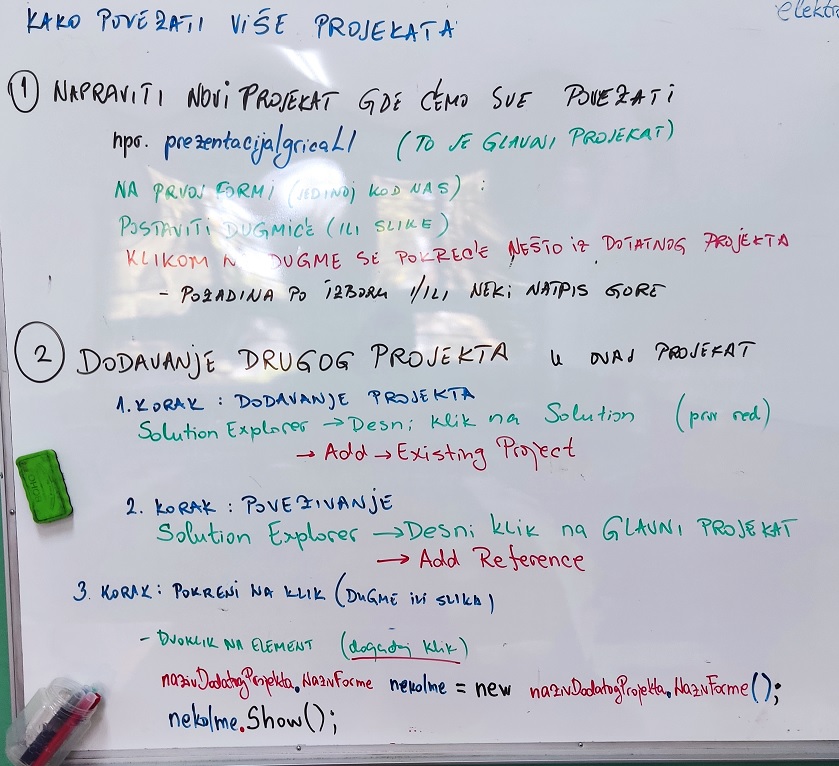 KAKO POVEZATI VIŠE PROJEKATA
elektr
1 NAPRAVITI NOVI PROJEKAT GDE ĆEMO SVE POVEZATI
npr. prezentacijaIgricaLI (TO JE GLAVNI PROJEKAT)
NA PRVOJ FORMI (JEDINOJ KOD NAS) :
POSTAVITI DUGMIĆE (ILI SLIKE)
KLIKOM NA DUGME SE POKREĆE NEŠTO IZ DOTATNOG PROJEKTA
- POZADINA PO IZBORU I/ILI NEKI NATPIS GORE
2 DODAVANJE DRUGOG PROJEKTA U OVAJ PROJEKAT
1. KORAK : DODAVANJE PROJEKTA
Solution Explorer → Desni klik na Solution (prvi red)
→ Add → Existing Project
2. KORAK : POVEZIVANJE
Solution Explorer → Desni klik na GLAVNI PROJEKAT
→ Add Reference
3. KORAK : POKRENI NA KLIK (DUGME ILI SLIKA)
- DVOKLIK NA ELEMENT (događaj klik)
nazivDodatogProjekta.NazivForme nekoIme = new nazivDodatogProjekta.NazivForme();
nekoIme.Show();